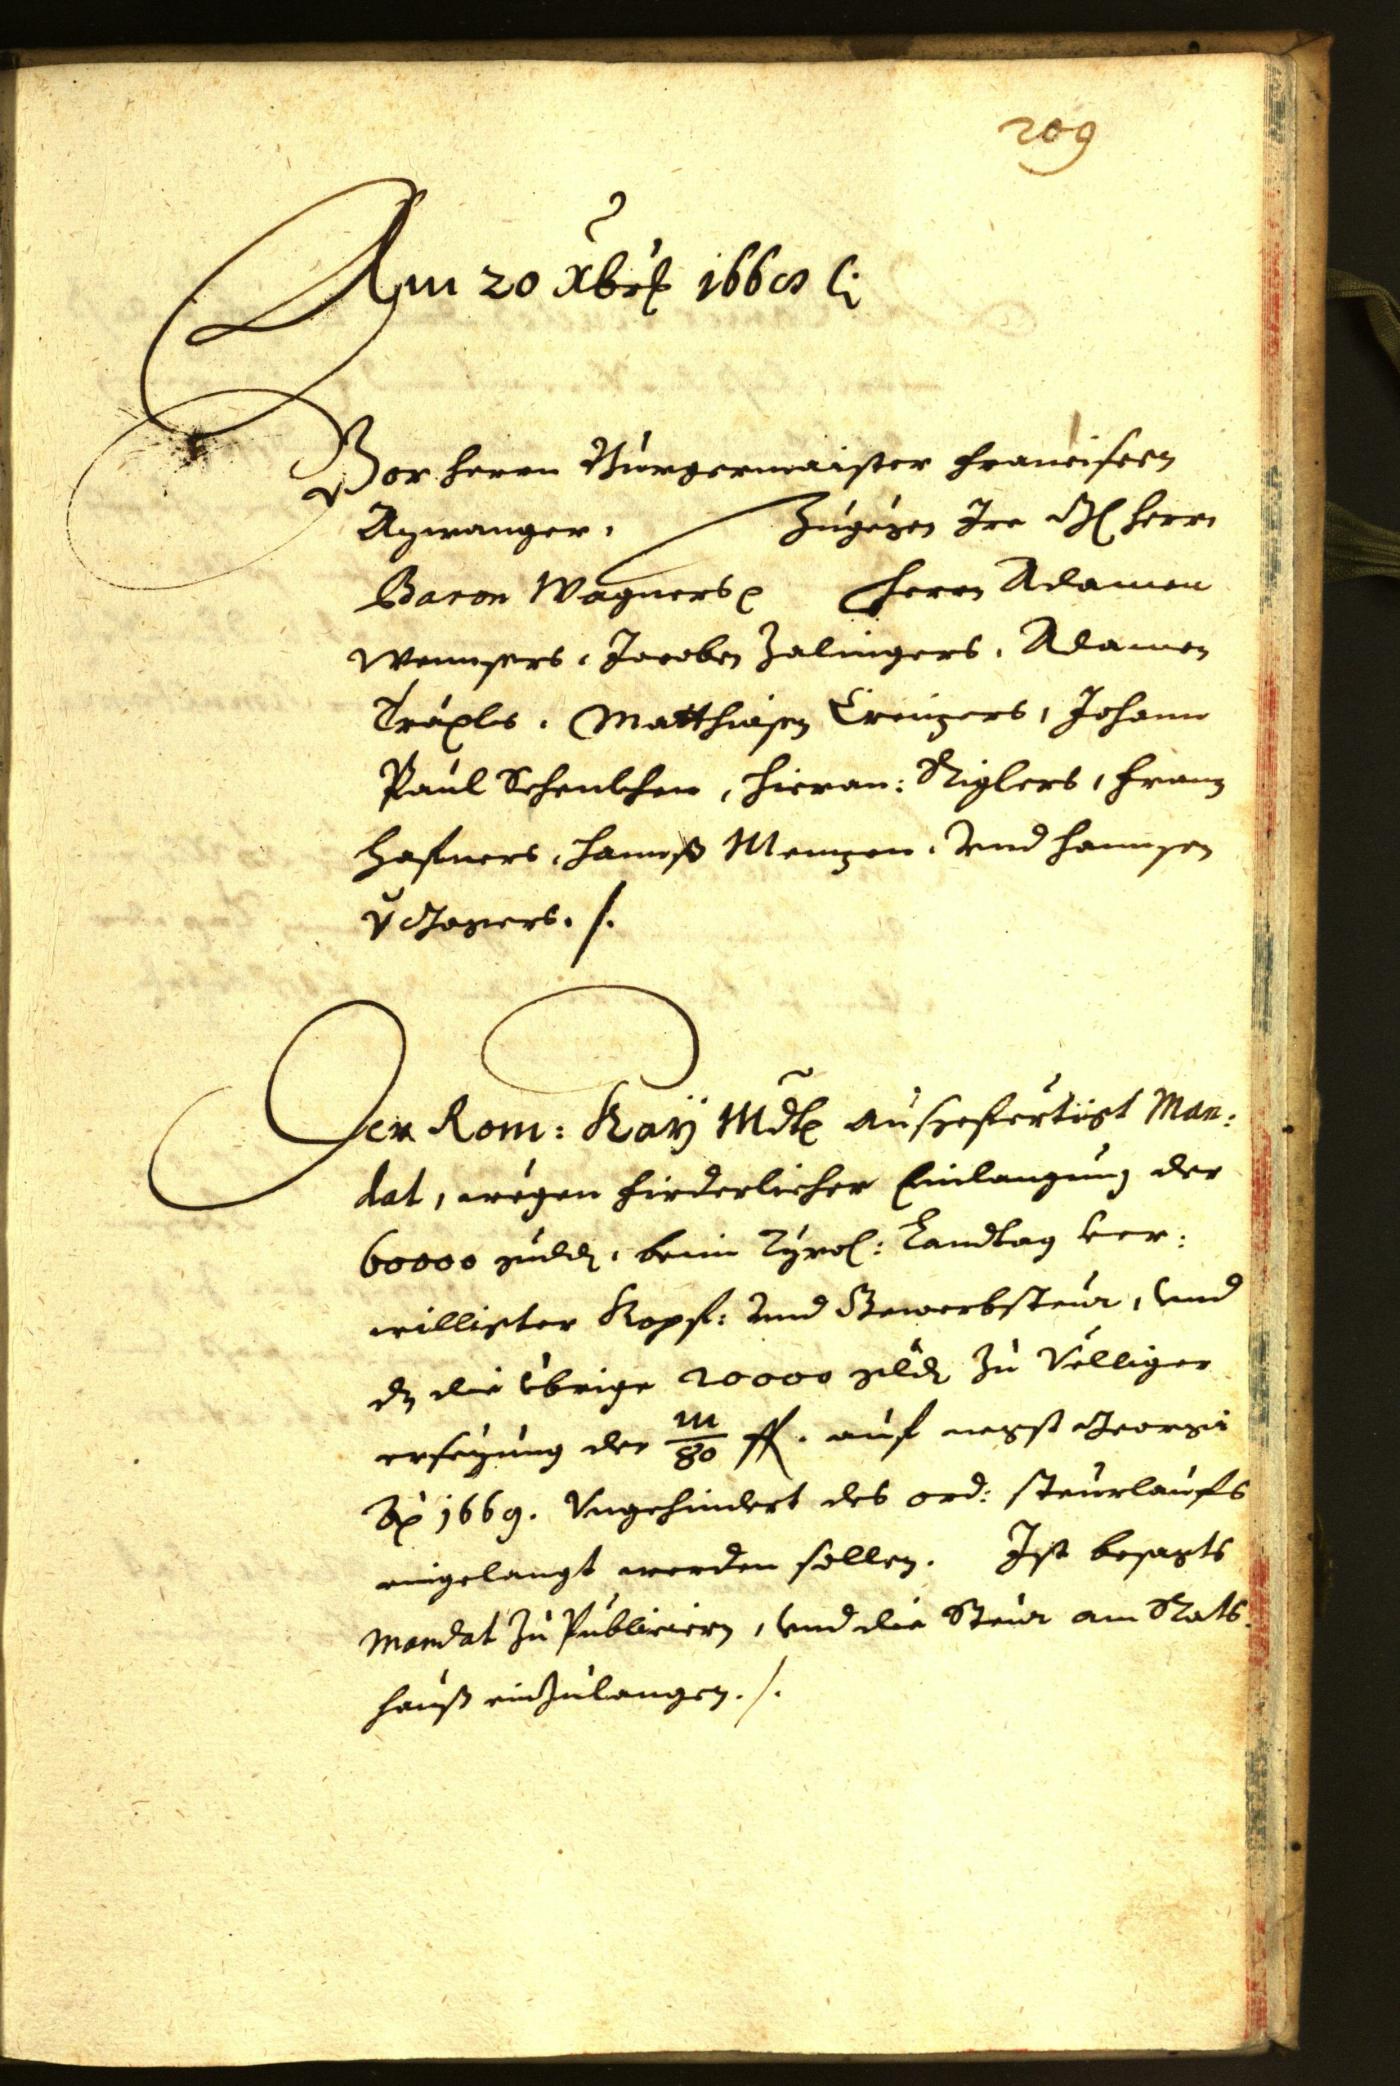 209
Am 20 Xbris 1668 ./.
Vor herrn Burgermaister Franciscen
Azwanger. Zugegen Ire Gl herrn
Baron Wagners herrn Adamen
Wennsers, Jacoben Zalingers, Adamen
Träxls, Matthiasen Creuzers, Johann
Paul Schenkhen, Hieran: Riglers, Franz
Hafners, Hannß Menzen, Vnd Hannsen
V Gozners ./.
Der Röm: Kay Mdt ausgefertigt Man:
dat, wegen firderlicher Einlangung der
60000 guld, beim Tyrol: Landtag ver:
willigter Kopf: Vnd Gewerbsteur, vnd
dz die ybrige 20000 guld zu Völliger
ersezung der m/80 fl. auf negst Georgii
Ao 1669. Vngehindert des ord: steurlaufs
eingelangt werden sollen. Ist besagts
Mandat zu Publiciern, vnd die Steur am Rats
hauß einzulangen ./.